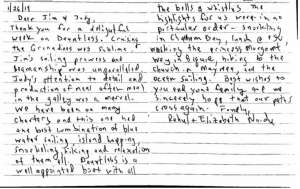 1/26/19
Dear Jim & Judy,
Thank you for a delightful
week on Dauntless. Cruising
the Grenadines was sublime.
Jim's sailing prowess and
seamanship was unparalleled.
Judy's attention to detail and
production of meal after meal
in the galley was a marvel.
We have been on many
charters and this one had
the best combination of blue
water sailing, island hopping,
snorkeling, hiking and relaxation
of them all. Dauntless is a
well appointed boat with all
the bells & whistles. The
highlights for us were in no
particular order - snorkeling
in Chatham Bay, lunch @
watching the Princess Margaret
hiking to the
church in Mayreau, and the
sailing. Best wishes to
you and your family and we
sincerely hope that our paths
cross again. Fondly,
& Elizabeth